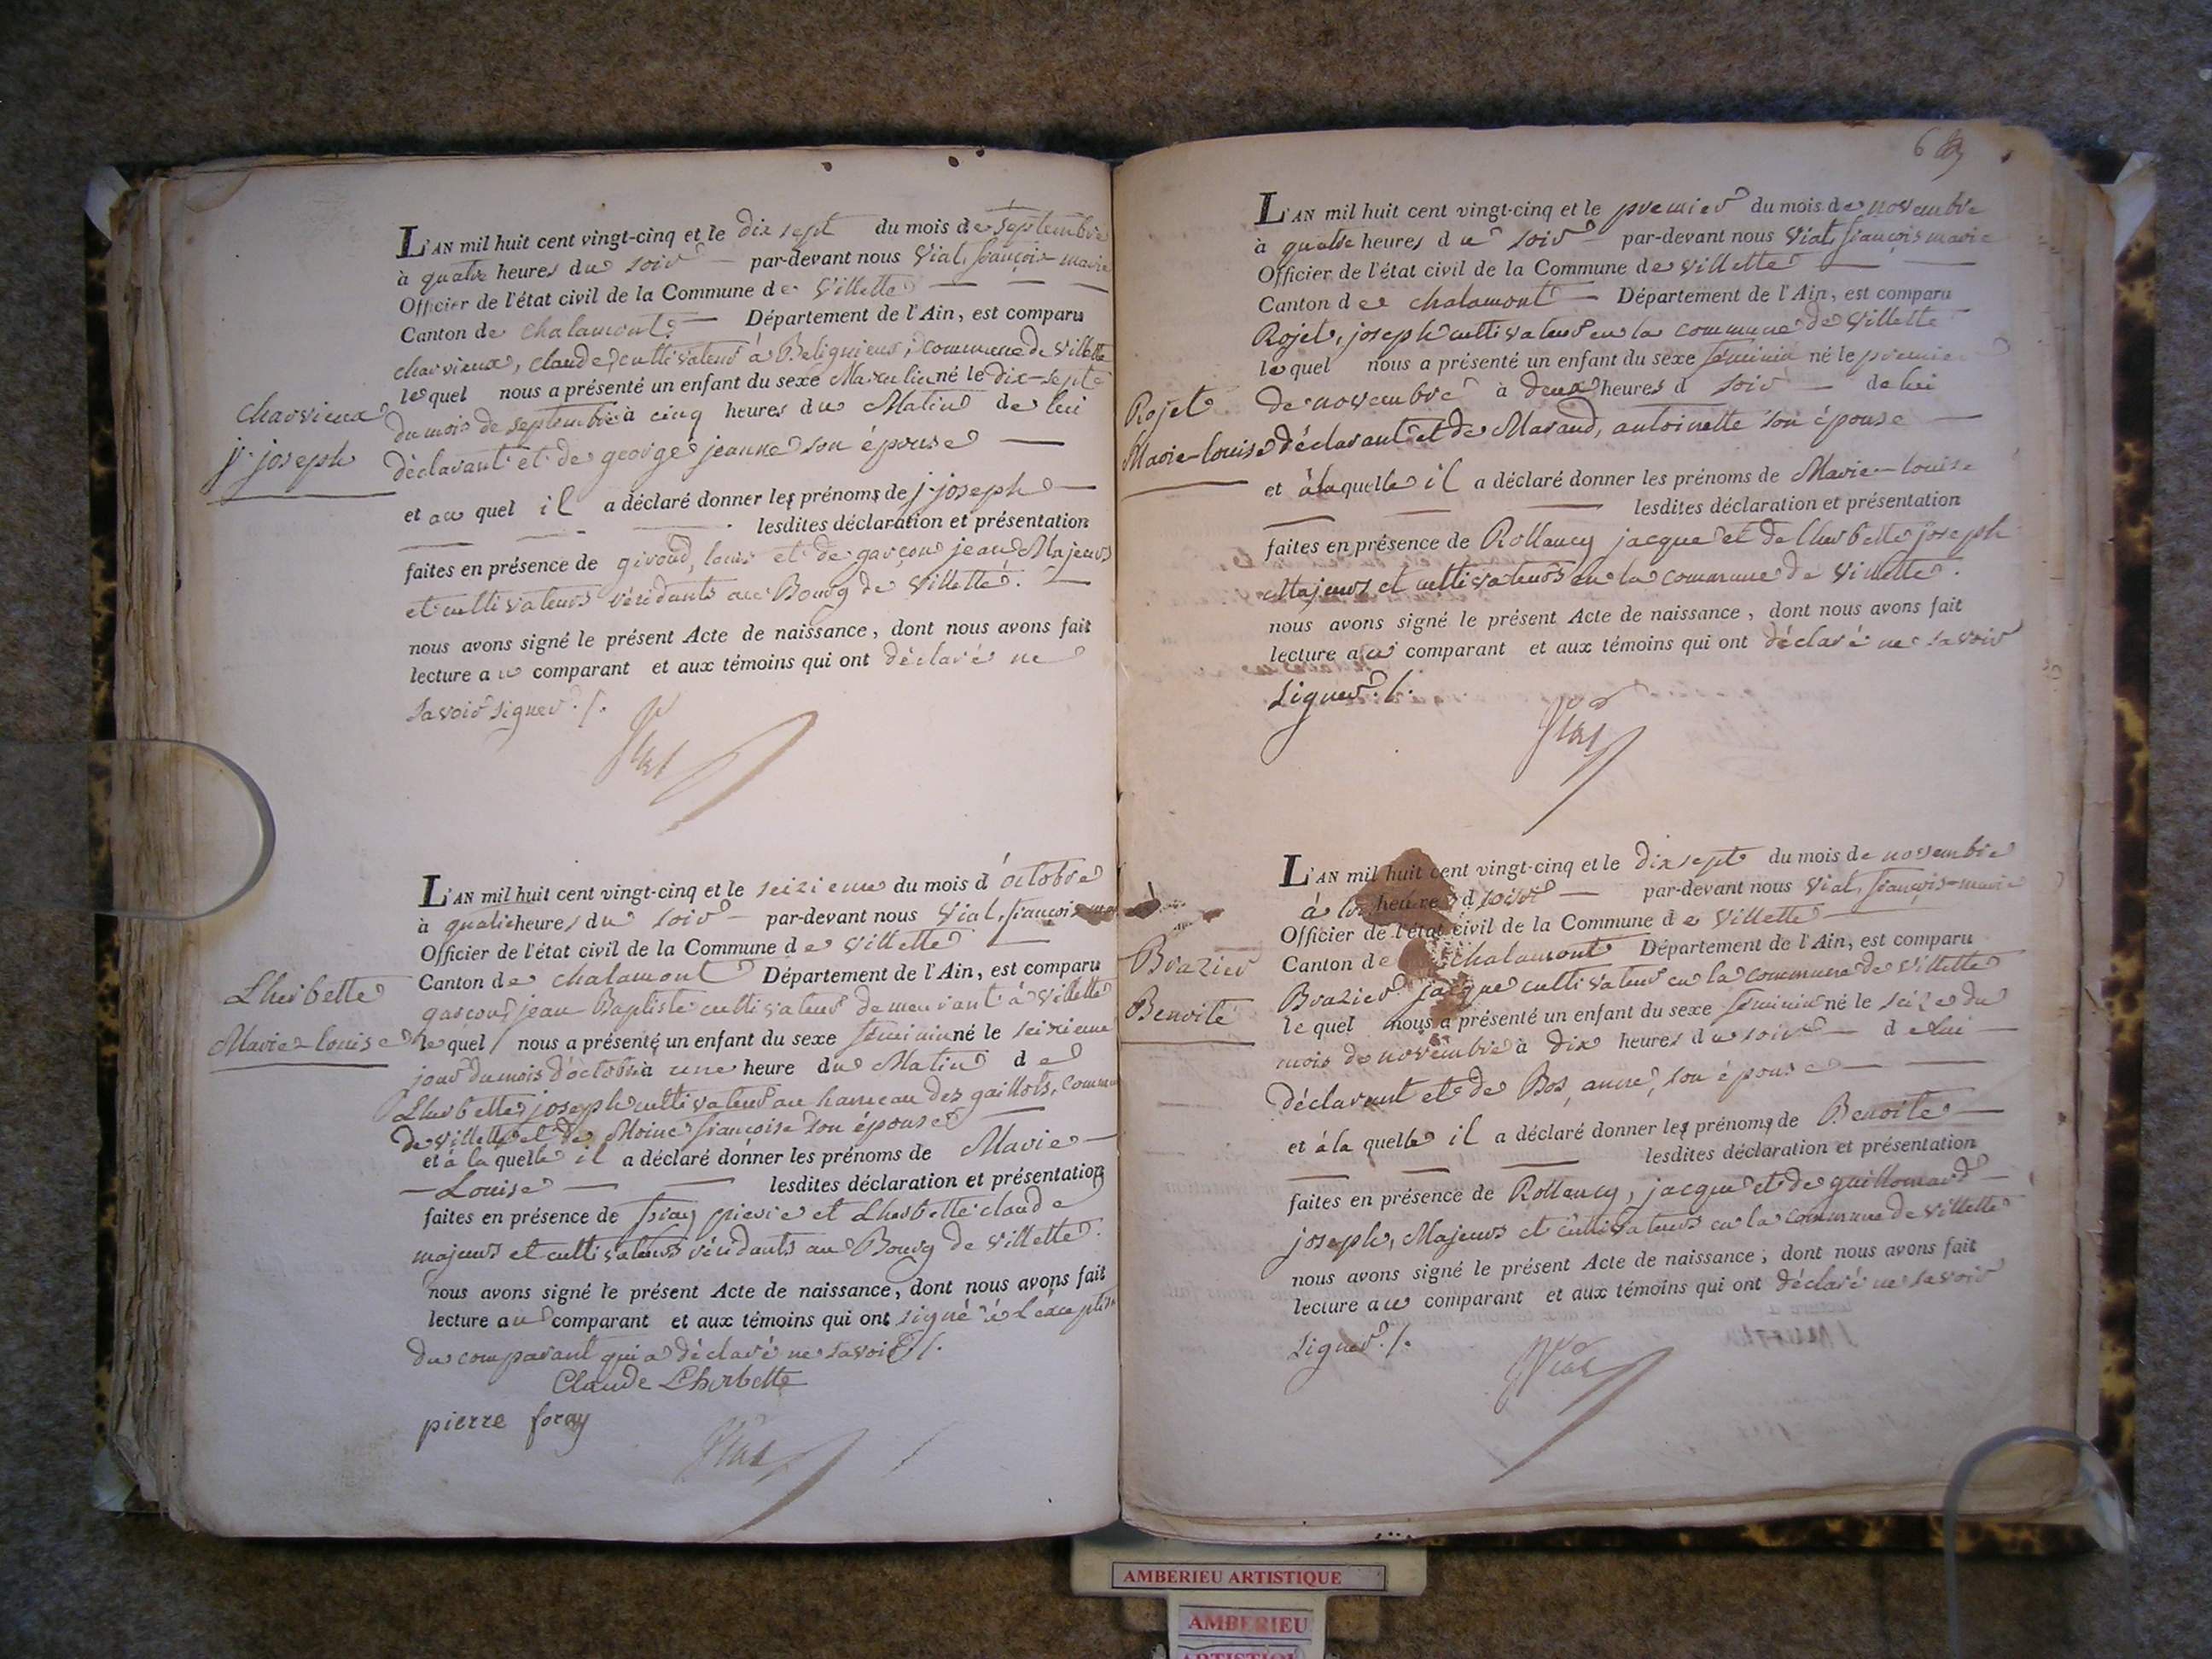 Charvieux
j. joseph
L'AN mil huit cent vingt-cinq et le dix sept du mois de septembre
à quatre heures du soir par-devant nous Vial, françois marie
Officier de l'état civil de la Commune de Villette
Canton de chalamont Département de l'Ain, est comparu
charvieux, claude, cultivateur à Beligneux, commune de Villette
lequel nous a présenté un enfant du sexe Masculin né le dix-sept
du mois de septembre à cinq heures du Matin de lui
déclarant et de george jeanne son épouse
et au quel il a déclaré donner les prénoms de j. joseph
lesdites déclaration et présentation
faites en présence de giroud, louis et de garçon jean Majeurs
et cultivateurs résidants au Bourg de Villette.
nous avons signé le présent Acte de naissance, dont nous avons fait
lecture au comparant et aux témoins qui ont déclaré ne
savoir signer ./.
Vial
Lherbette
Marie-louise
L'AN mil huit cent vingt-cinq et le seizieme du mois d'octobre
à quatre heures du soir par-devant nous Vial, françois
Officier de l'état civil de la Commune de Villette
Canton de chalamont Département de l'Ain, est comparu
garçon, jean Baptiste cultivateur demeurant à Villette
lequel nous a présenté un enfant du sexe feminin né le seizieme
jour du mois d'octobre à une heure du Matin de
Lherbette, joseph cultivateur au hameau des gaillots, commu
de Villette et de Moine françoise son épouse
et à la quelle il a déclaré donner les prénoms de Marie
Louise lesdites déclaration et présentation
faites en présence de foray pierre et Lherbette claude
majeurs et cultivateurs résidants au Bourg de Villette.
nous avons signé le présent Acte de naissance, dont nous avons fait
lecture au comparant et aux témoins qui ont signé à l'exception
du comparant qui a déclaré ne savoir ./.
Claude Lherbette
pierre foray
Vial
6
Rojet
Marie-louise
L'AN mil huit cent vingt-cinq et le premier du mois de novembre
à quatre heures du soir par-devant nous Vial, françois marie
Officier de l'état civil de la Commune de Villette
Canton de chalamont Département de l'Ain, est comparu
Rojet, joseph cultivateur en la commune de Villette
lequel nous a présenté un enfant du sexe feminin né le premier
de novembre à deux heures d soir de lui
déclarant et de Marand, antoinette son épouse
et à la quelle il a déclaré donner les prénoms de Marie-louise
lesdites déclaration et présentation
faites en présence de Rollancy jacque et de Lherbette joseph
Majeurs et cultivateurs en la commune de Villette.
nous avons signé le présent Acte de naissance, dont nous avons fait
lecture au comparant et aux témoins qui ont déclaré ne savoir
signer ./.
Vial
Brazier
Benoite
L'AN mil huit cent vingt-cinq et le dix sept du mois de novembre
à heures d soir par-devant nous Vial, françois-marie
Officier de l'état civil de la Commune de Villette
Canton de chalamont Département de l'Ain, est comparu
Brazier jacque cultivateur en la commune de Villette
lequel nous a présenté un enfant du sexe feminin né le seize du
mois de novembre à dix heures du soir de lui
déclarant et de Bos, anne, son épouse
et à la quelle il a déclaré donner les prénoms de Benoite
lesdites déclaration et présentation
faites en présence de Rollancy, jacque et de guillomard
joseph, Majeurs et cultivateurs en la commune de Villette
nous avons signé le présent Acte de naissance, dont nous avons fait
lecture au comparant et aux témoins qui ont déclaré ne savoir
signer ./.
Vial
AMBERIEU ARTISTIQUE
AMBERIEU
ARTISTIQUE